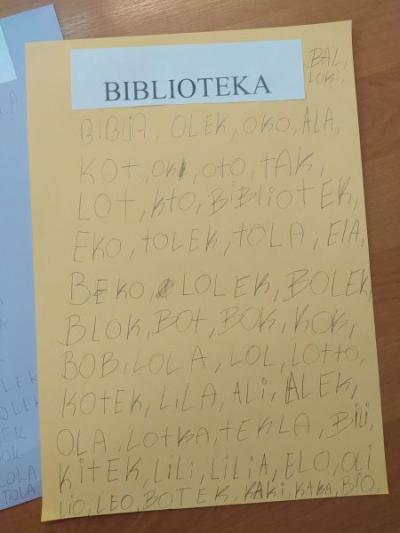 BIBLIOTEKA
BAL,
LOKI,
BIBLIA, OLEK, OKO, ALA,
KOT, OKI, OTO, TAK,
LOT, KTO, BIBLIOTEK,
EKO, TOLEK, TOLA, ELA,
BEKO, LOLEK, BOLEK,
BLOK, BOT, BOK, KOK,
BOB, LOLA, LOL, LOTTO,
KOTEK, LILA, ALi, ALEK,
OLA, LOTKA, TEKLA, BiLi,
KiTEK, LiLi, LiLiA, ELO, OLi
LiO, LEO, BOTEK, KAKi, KAKA, BiO,
OLEK
LOLA
TOLA